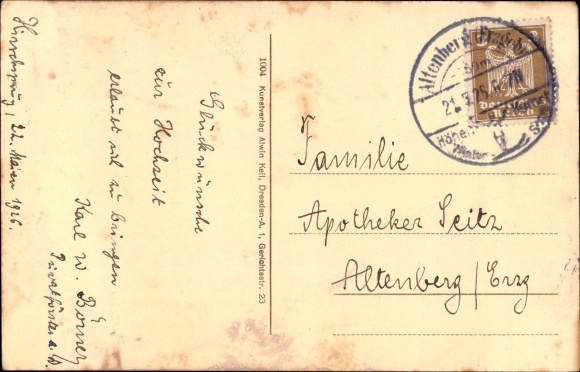 Hirschsprung, 22. 1926.
Glückwünsche
zur Hochzeit
erlaubt sich zu bringen
Karl W. Börner
Privatförster a/D.
1004 Kunstverlag Alwin Keil, Dresden-A. 1, Gerichtsstr. 23
Altenberg (Erzgeb)
21.3.26
Höhen
Winter
Deutsches Reich
Familie
Apotheker Seitz
Altenberg/Erzg